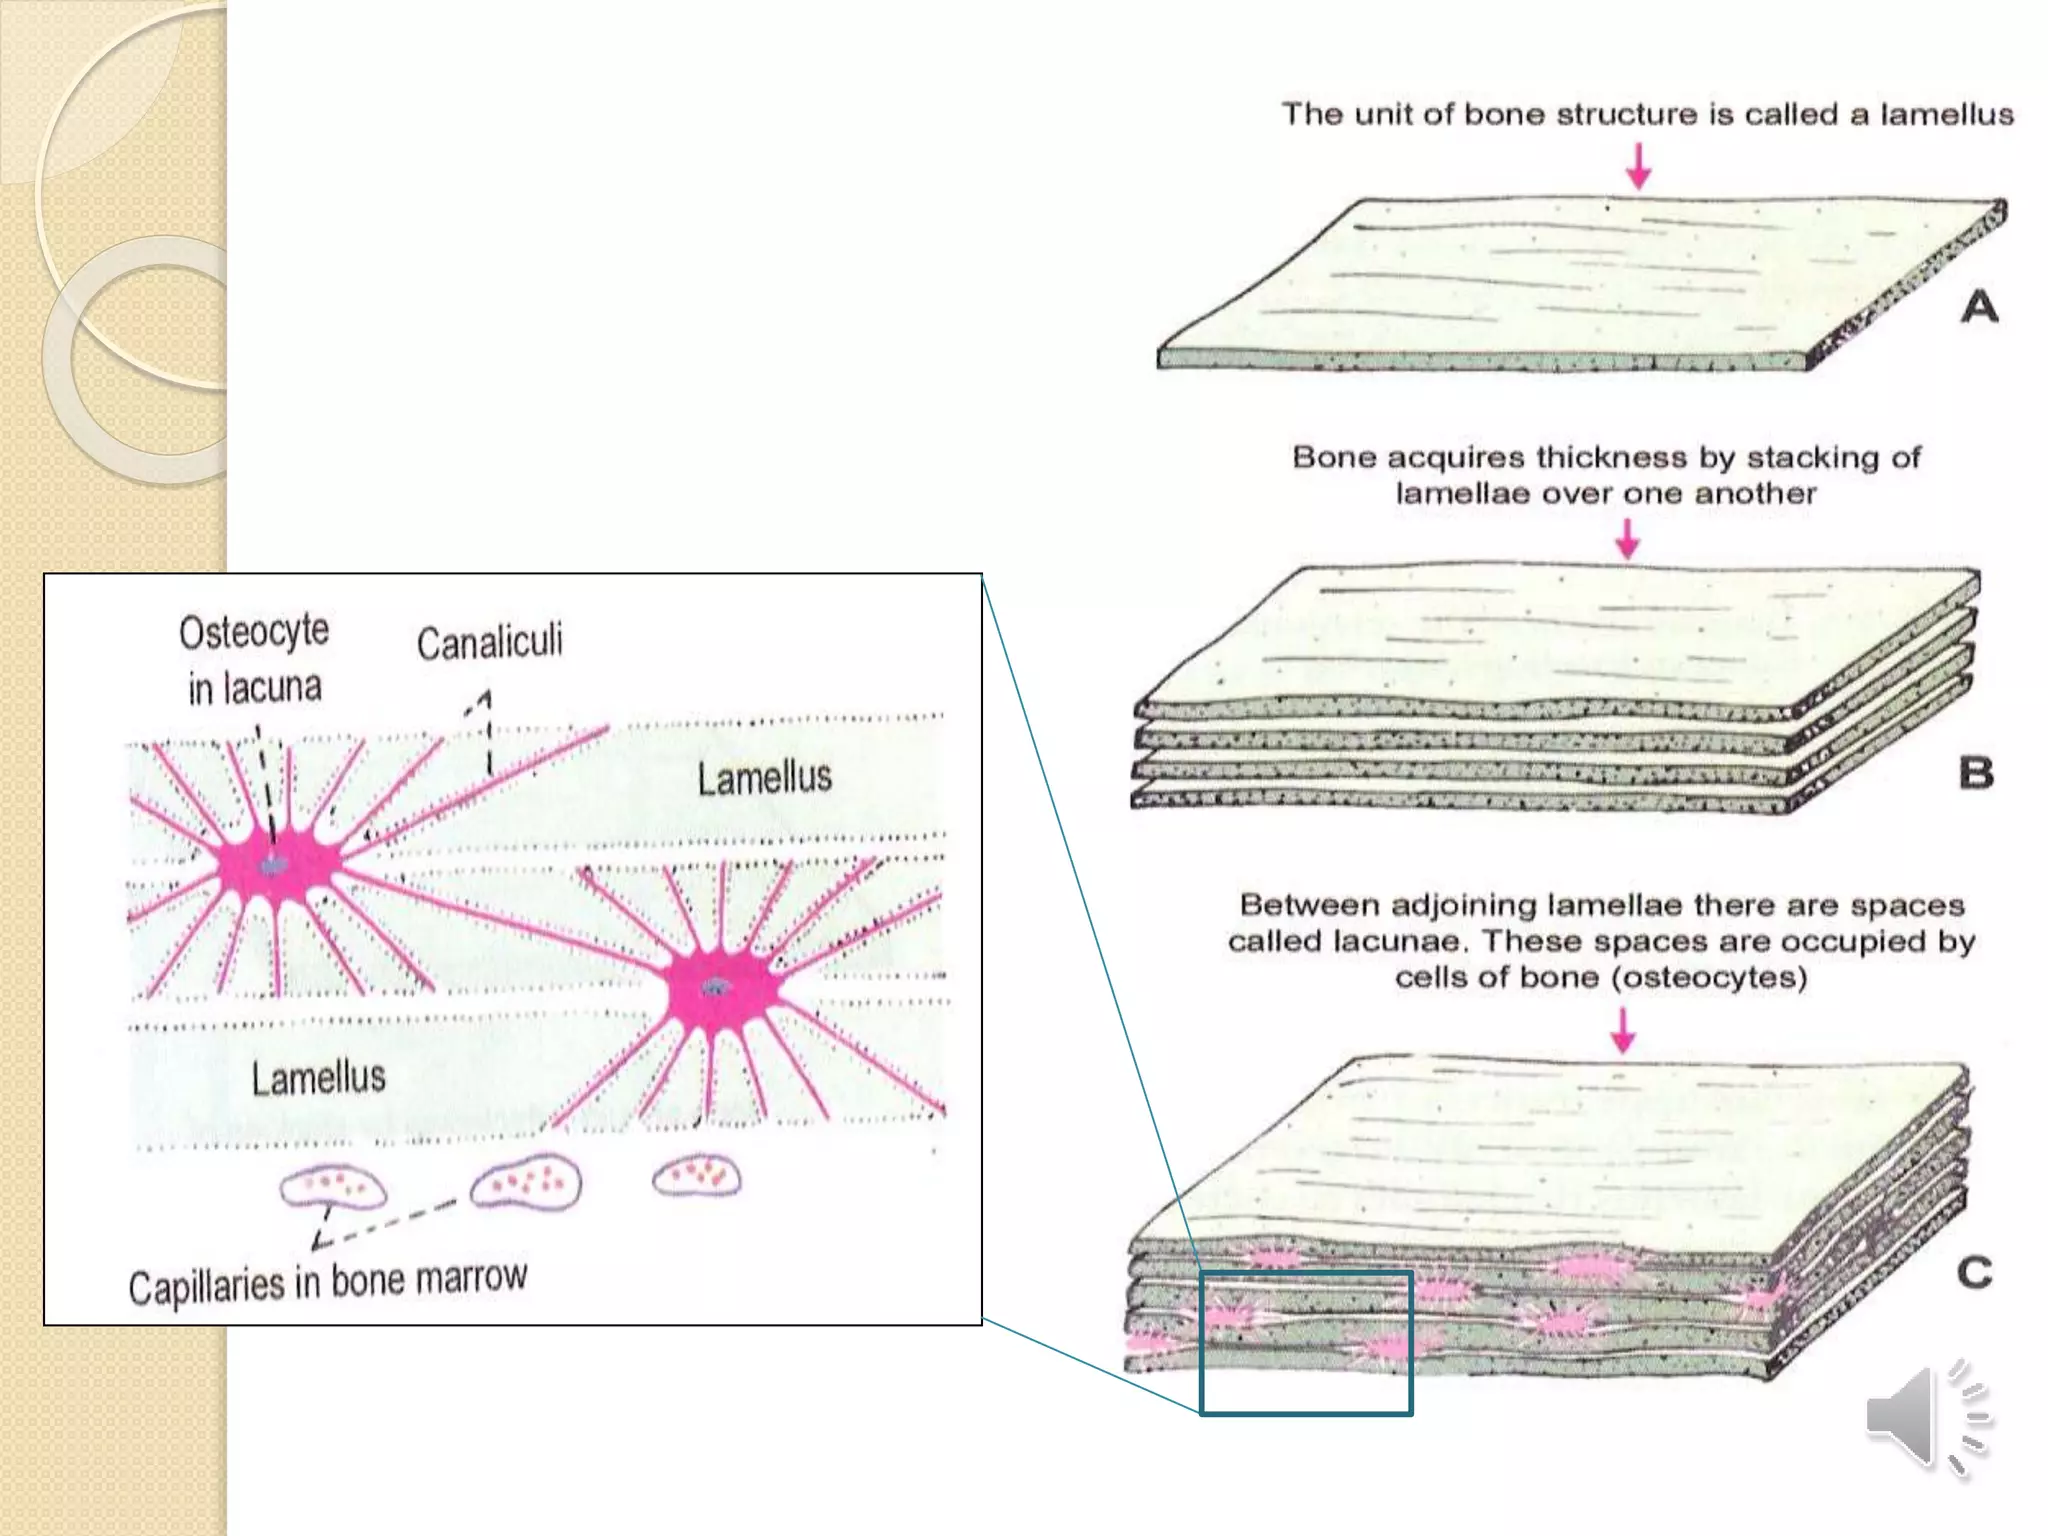 The unit of bone structure is called a lamellus
A
Bone acquires thickness by stacking of
lamellae over one another
B
Between adjoining lamellae there are spaces
called lacunae. These spaces are occupied by
cells of bone (osteocytes)
C
Osteocyte
in lacuna
Canaliculi
Lamellus
Lamellus
Capillaries in bone marrow